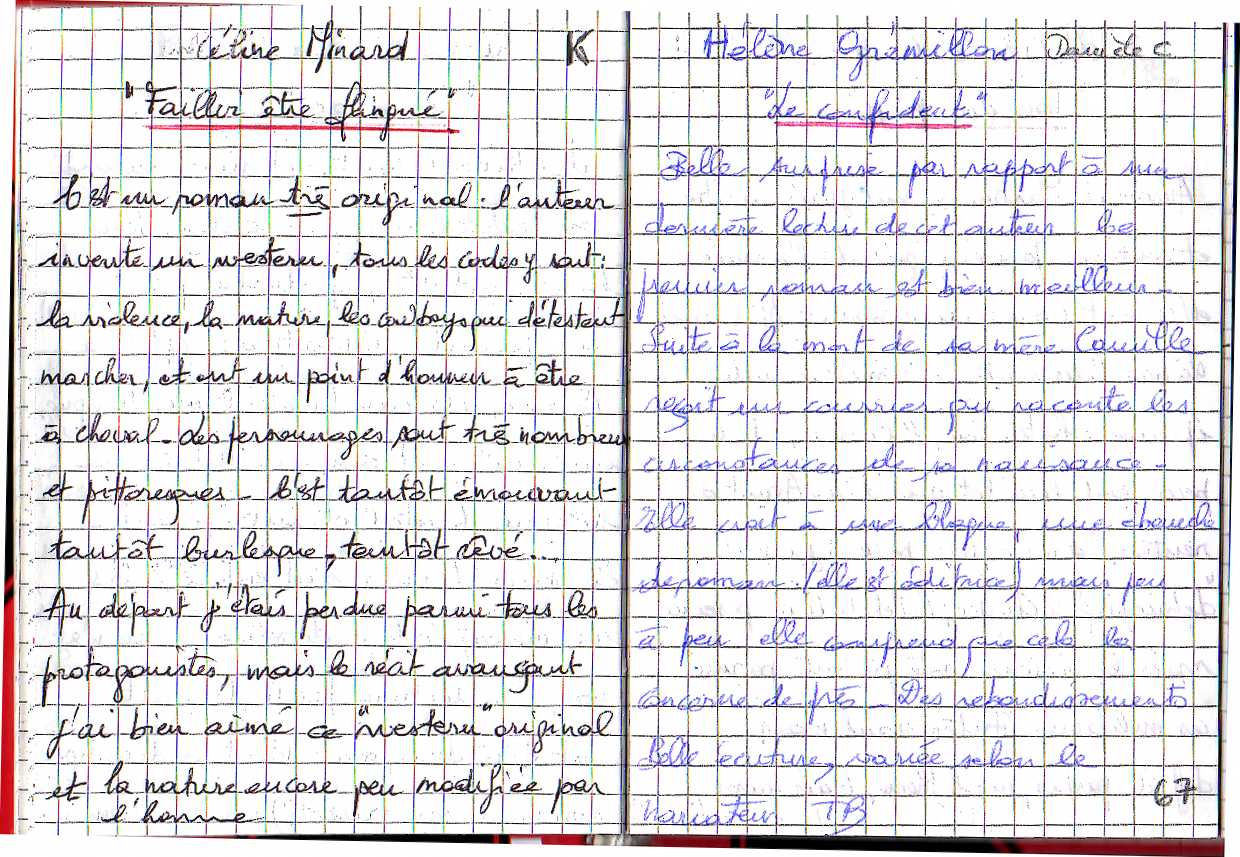 Céline Minard K
"Faillir être flingué"
C'est un roman très original. l'auteur
invente un western, tous les codes y sont:
la violence, la nature, les cowboys qui détestent
marcher, et ont un point d'honneur à être
à cheval. Les personnages sont très nombreux
et pittoresques - C'est tantôt émouvant
tantôt burlesque, tantôt rêvé...
Au départ j'étais perdue parmi tous les
protagonistes, mais le récit avançant
j'ai bien aimé ce "western" original
et la nature encore peu modifiée par
l'homme
Hélène Grémillon Danièle C
"Le confident"
Belle surprise par rapport à ma
dernière lecture de cet auteur. Ce
premier roman est bien meilleur -
Suite à la mort de sa mère Camille
reçoit un courrier qui raconte les
circonstances de sa naissance -
Elle croit à une blague, une ébauche
de roman. (elle est éditrice) mais peu
à peu elle comprend que cela la
concerne de près - Des rebondissements
Belle écriture, variée selon le
narrateur TB
67